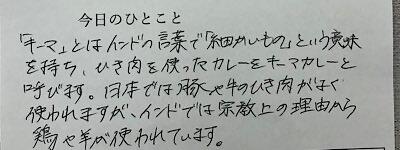 今日のひとこと
「キーマ」とはインドの言葉で「細かいもの」という意味
を持ち、ひき肉を使ったカレーをキーマカレーと
呼びます。日本では豚や牛のひき肉がよく
使われますが、インドでは宗教上の理由から
鶏や羊が使われています。